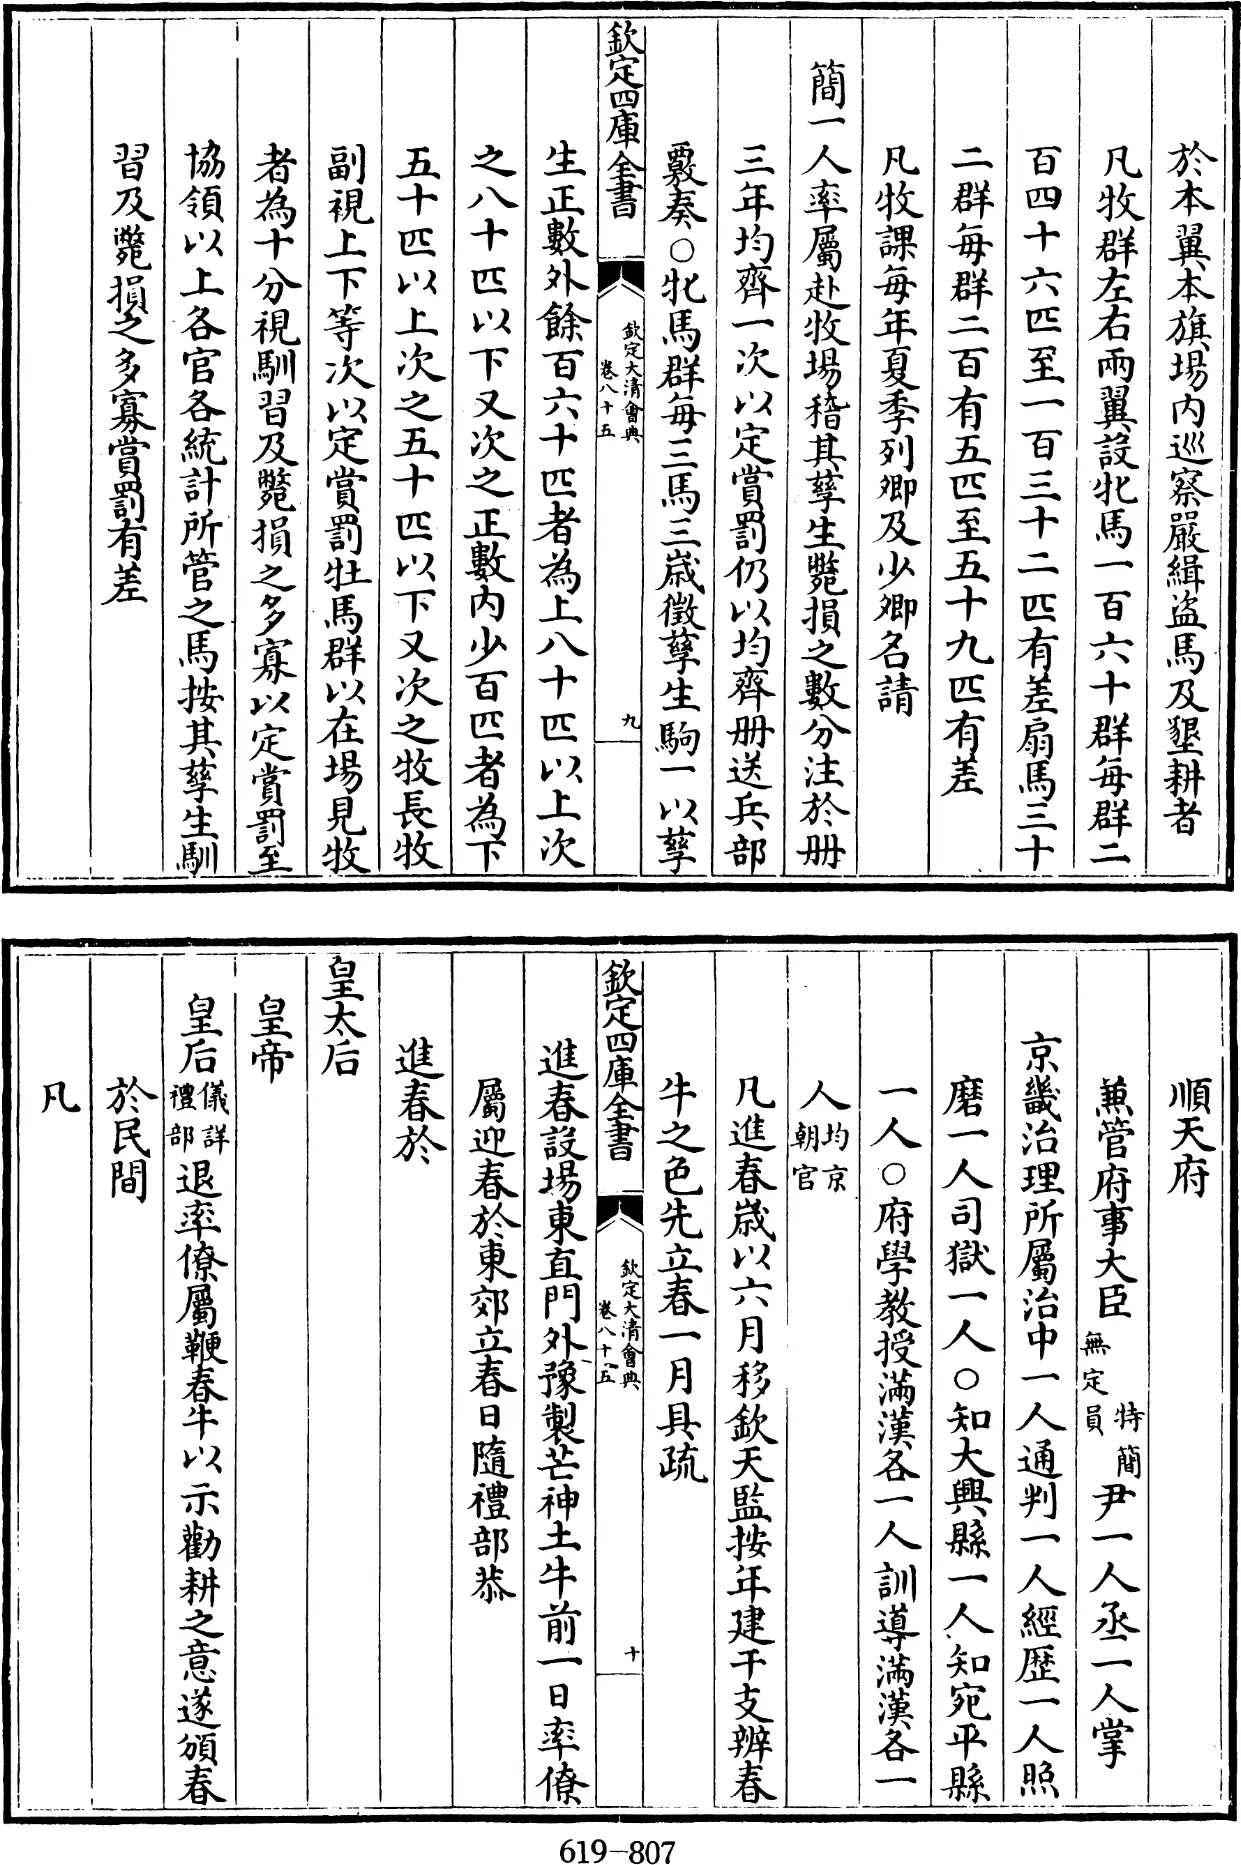 於本翼本旗場内巡察嚴緝盜馬及墾耕者
凡牧群左右兩翼設牝馬一百六十群每群二
百四十六匹至一百三十二匹有差扇馬三十
二群每群二百有五匹至五十九匹有差
凡牧課每年夏季列卿及少卿名請
簡一人率屬赴牧場稽其孳生斃損之數分注於册
三年均齊一次以定賞罰仍以均齊册送兵部
覈奏○牝馬群每三馬三歲徵孳生駒一以孳
欽定四庫全書
欽定大清會典
卷八十五
九
生正數外餘百六十匹者為上八十匹以上次
之八十匹以下又次之正數内少百匹者為下
五十匹以上次之五十匹以下又次之牧長牧
副視上下等次以定賞罰牡馬群以在場見牧
者為十分視馴習及斃損之多寡以定賞罰至
協領以上各官各統計所管之馬按其孳生馴
習及斃損之多寡賞罰有差
順天府
兼管府事大臣特簡無定員尹一人丞一人掌
京畿治理所屬治中一人通判一人經歷一人照
磨一人司獄一人○知大興縣一人知宛平縣
一人○府學教授滿漢各一人訓導滿漢各一
人均京朝官
凡進春歲以六月移欽天監按年建干支辨春
牛之色先立春一月具疏
欽定四庫全書
欽定大清會典
卷八十五
十
進春設場東直門外豫製芒神土牛前一日率僚
屬迎春於東郊立春日隨禮部恭
進春於
皇太后
皇帝
皇后儀詳禮部退率僚屬鞭春牛以示勸耕之意遂頒春
於民間
凡
619-807